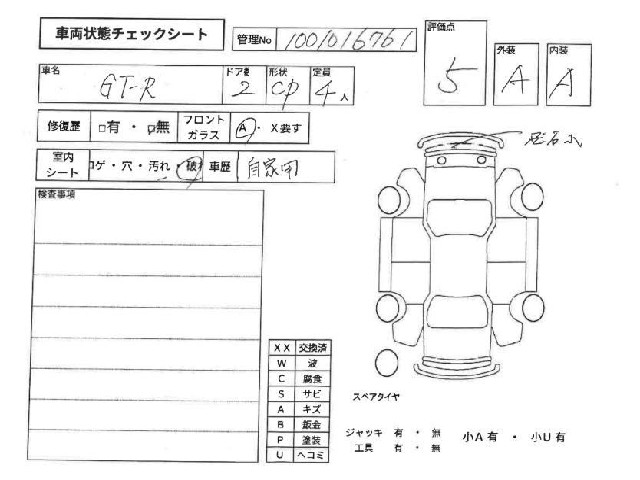 車両状態チェックシート
管理No 1001016761
評価点 5
外装 A
内装 A
車名 GT-R
ドア数 2
形状 CP
定員 4人
修復歴 □有・□無
フロントガラス A・X要す
室内シート コゲ・穴・汚れ・破れ
車歴 自家用
検査事項
飛石小
XX 交換済
W 波
C 腐食
S サビ
A キズ
B 鈑金
P 塗装
U ヘコミ
スペアタイヤ
ジャッキ 有・無
工具 有・無
小A有・小U有